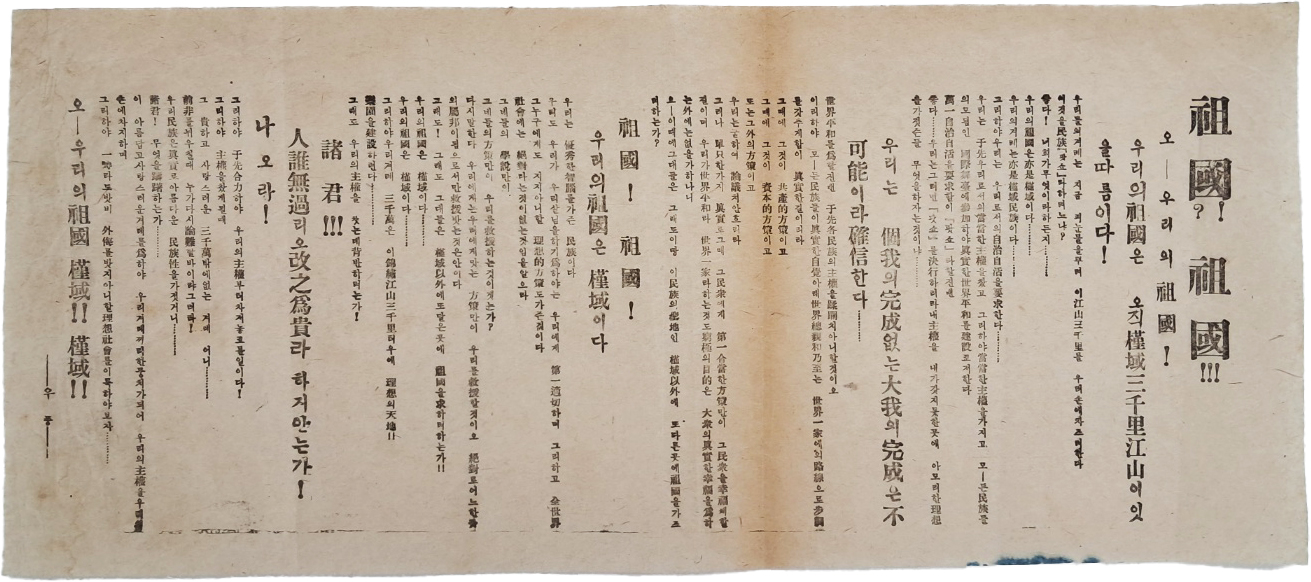 祖國! 祖國!!!
오—우리의祖國!
우리의祖國은 오직槿域三千里江山이잇
을따름이다!
우리들의겨레는 지금 피눈물을뿌려 이江山三千里를 우리손에차즈려한다
이것을民族「팟쇼」타하려느냐?
좋다! 너희가무엇이라하든지……
우리의祖國은亦是槿域이다……
우리의겨레는亦是槿域民族이다……
그리하야우리는 우리로서의自治自活을要求한다……
우리는 于先우리로서의當當한主權을찾고 그리하야當當한主權을가지고 모—든民族들
의모듬인 國際舞臺에參加하야眞實한世界平和를建設코저한다
萬一自治自活을要求함이「팟쇼」라할진댄
좋다……우리는그러면「팟쇼」를決行하리라내主權을 내가갖지못한곳에 아모러한理想
을가젓은들 무엇을하자는것이냐……
우리는 個我의完成없는大我의完成은不
可能이라確信한다……
世界平和를爲할진댄 于先各民族의主權을蹂躪치아니할것이오
이리하야 모—든民族들이眞實한自覺아래世界總親和乃至는 世界一家에의路線으로步調
를갖추게함이 眞實한길이의라
그때에 그것이 共産的方策이고
그때에 그것이 資本的方策이고
또는그外의方策이고
우리는굳하여 論議치안흐리라
그러나 單只한가지 眞實로그때 그民衆에게 第一合當한方策만이 그民衆을幸福케할
길이며 우리가世界平和라 世界一家라하는것도窮極의目的은 大衆의眞實한幸福을爲하
는外에는없을가하나니
으—이때에그대들은 그래도이땅 이民族의聖地인 槿域以外에 또다른곳에祖國을가즈
려하는가?
祖國! 祖國!
우리의祖國은槿域이다
우리는 優秀한智腦를가즌 民族이다
우리도 우리가 우리살님을하기爲하야는 우리에게 第一適切하며 그리하고 全世界
그누구에게도 지지아니할 理想的方策도가즌것이다
社會에는 絕對라는것이없는것임을알으라
그대들의 學說만이
그대들의方策만이 우리를救援하는것이겟는가?
다시말한다 우리에게는우리에게맞는 方策만이 우리를救援할것이오 絕對로어느한나라
의屬邦이됨으로서만救援받는것은안이다
그래도! 그래도 그대들은 槿域以外에또닯은곳에 祖國을求하려하는가!!
우리의祖國은 槿域이다……
우리의祖國은 槿域이다……
그리하야우리겨레 三千萬은 이錦繡江山三千里터우에 理想의天地!!
樂園을建設하련다……
그래도 우리의主權을 찻는데背叛하려는가!
諸君!!!
人誰無過리오改之爲貴라 하지안는가!
나오라!
그리하야 于先合力하야 우리의主權부터차저놓고볼일이다!
그리하야 主權을찾게될때
그 貴하고 사랑스러운 三千萬밖에없는 겨레 어니……
前非를뉘우칠때 누가다시論難할바이랴그러라!
우리民族은眞實로아름다운 民族性을가젓거니……
諸君! 무엇을躊躇하는가!
이 아름답고사랑스러운겨레를爲하야 우리겨레끼리한뭉치가되어 우리의主權을우리
손에차지하며
그리하야 一때라도빳비 外侮를받지아니할理想社會를이룩하야보자……
오—우리의祖國 槿域!! 槿域!!
——우 종——